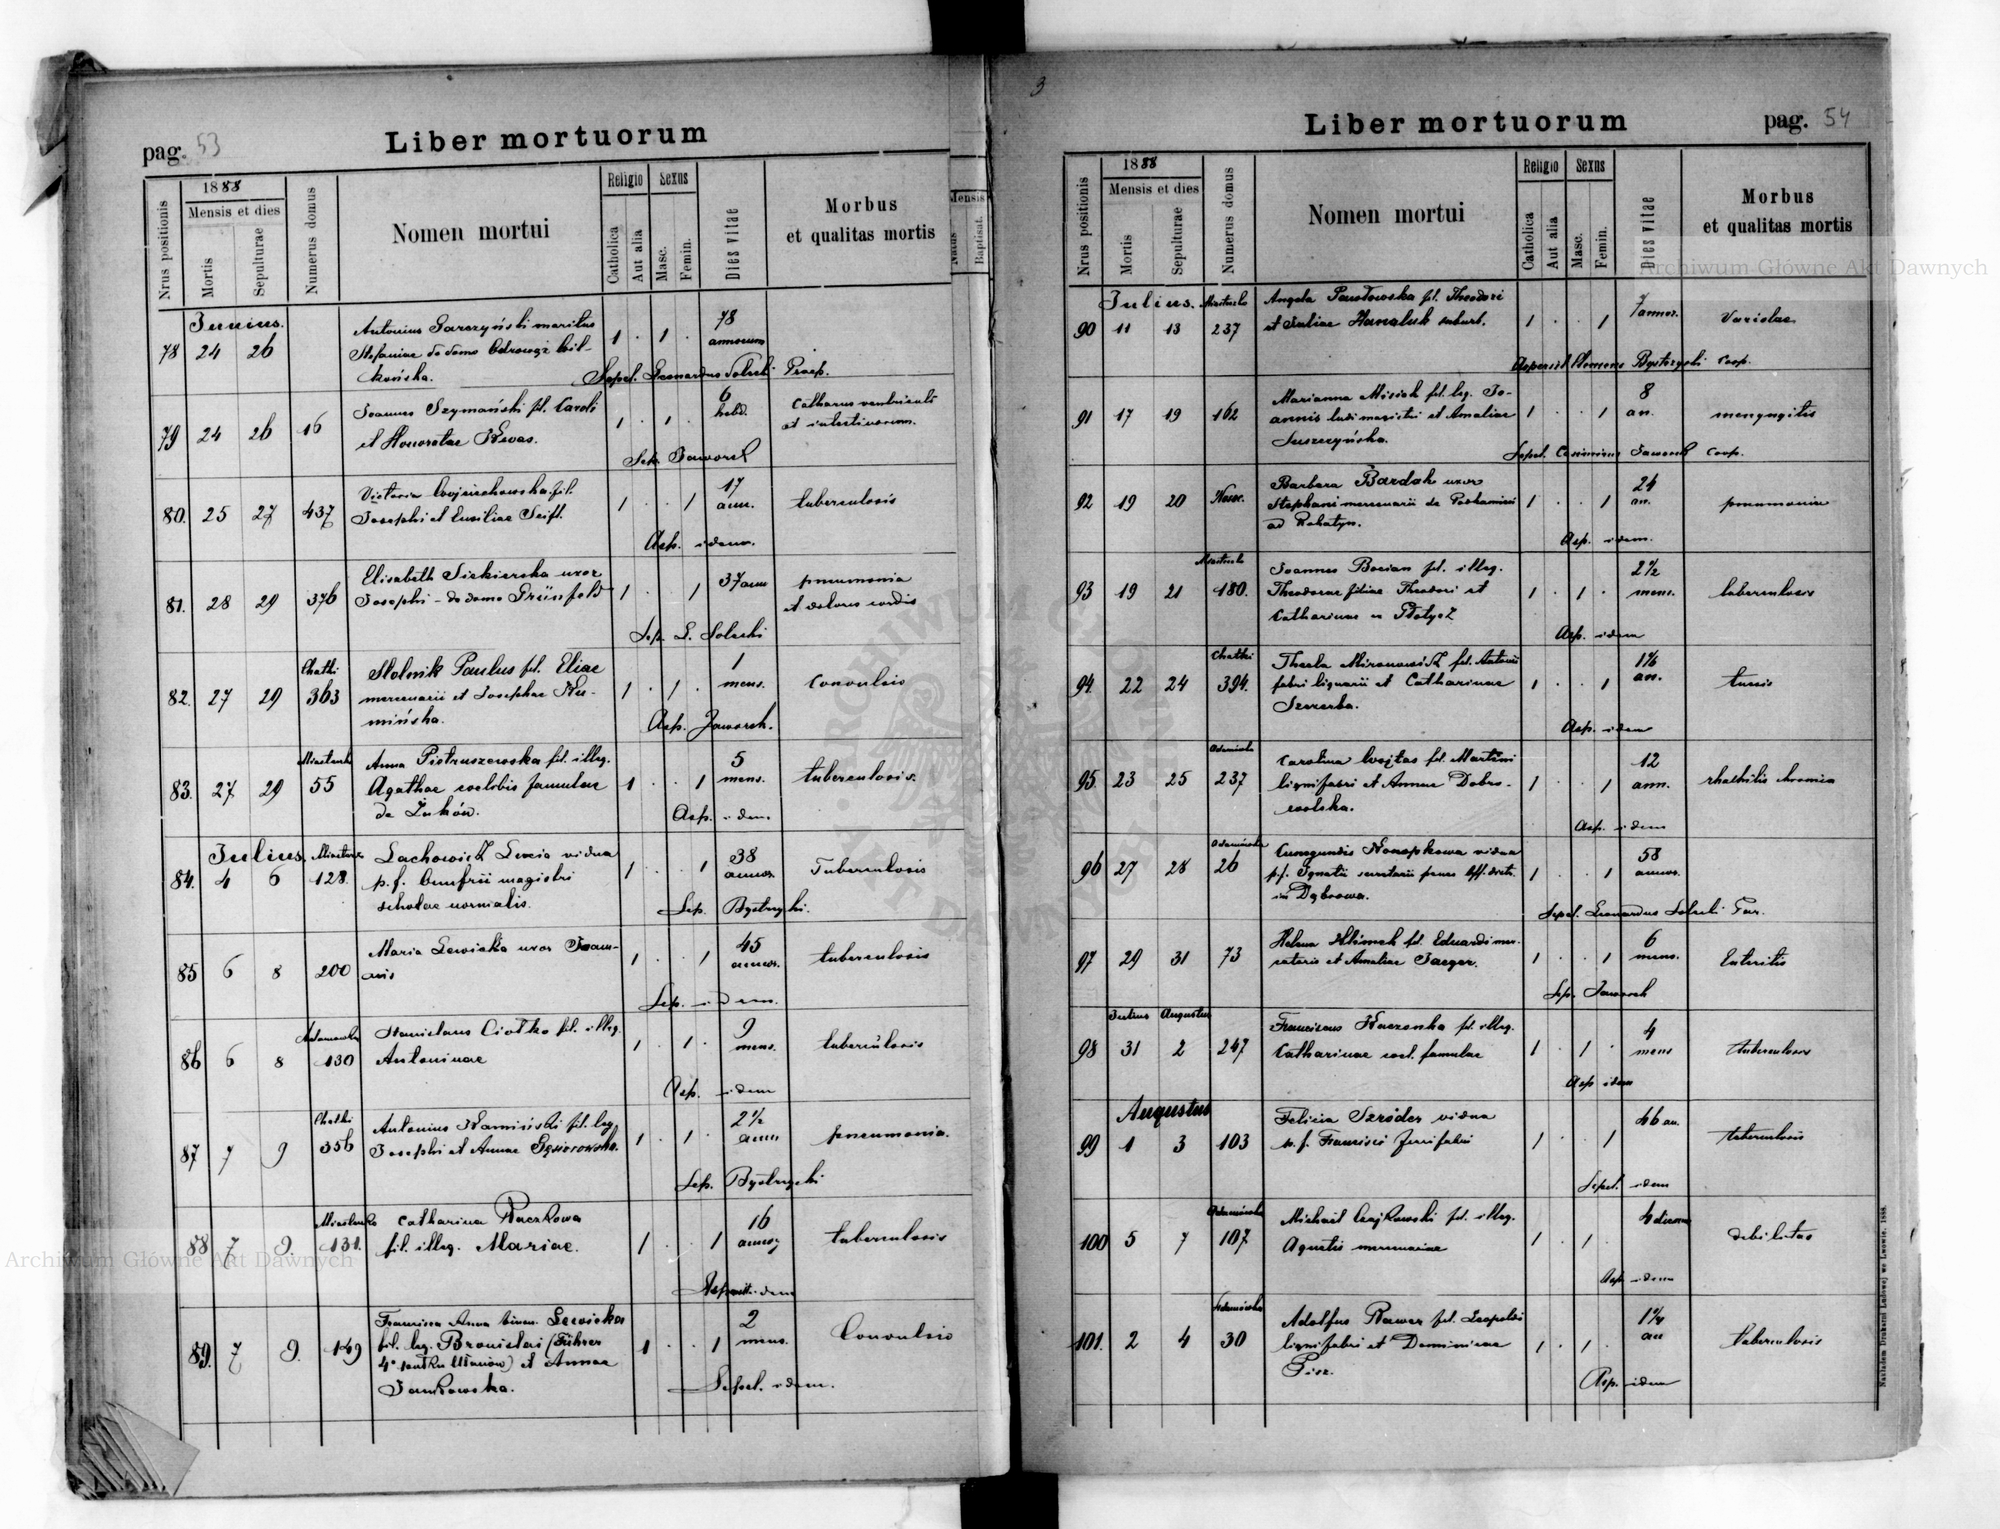 pag. 53
Liber mortuorum
Nrus positionis
1888
Mensis et dies
Mortis
Sepulturae
Numerus domus
Nomen mortui
Religio
Catholica
Aut alia
Sexus
Masc.
Femin.
Dies vitae
Morbus
et qualitas mortis
Junius.
78 24 26
Antonius Garszyński maritus
Stefaniae de domo Odrowąż
1 . 1 .
78
annorum
Sepel. Leonardus Solecki
79 24 26 16
Joannes Szymański fil. Caroli
et Honoratae Kewas.
1 . 1 .
6
hebd.
Catharus ventriculi
et intestinorum.
Sep. Jaworek
80. 25 27 437
Victoria Wojciechowska fil.
Josephi et Emiliae Seifl.
1 . . 1
17
ann.
tuberculosis
Asp. idem.
81. 28 29 376
Elisabeth Siekierska uxor
Josephi - de domo Grünfeld
1 . . 1
37 ann
pneumonia
et dolores cordis
Sep. L. Solecki
82. 27 29
Chatki
363
Stolnik Paulus fil. Eliae
mercenarii et Josephae
mińska.
1 . 1 .
1
mens.
Convulsio
Asp. Jaworek.
83. 27. 29
Miasteczko
55
Anna Pietruszewska fil. illeg.
Agathae coelibis famulae
de Żuków.
1 . . 1
5
mens.
tuberculosis.
Asp. idem.
Julius.
84. 4 6
128.
Lachowicz Lucia vidua
p. f. Onufrii magistri
scholae normalis.
1 . . 1
38
annor.
Tuberculosis
Sep. Bystrzycki.
85 6 8 200
Maria Lewicka uxor Joan-
nis
1 . . 1
45
annor.
tuberculosis
Sep. idem.
86 6 8
Adamówka
130
Stanislaus Ciołko fil. illeg.
Antoninae
1 . 1 .
9
mens.
tuberculosis
Asp. idem
87 7 9
Chatki
356
Antonius Kamiński fil. leg.
Josephi et Annae Gąsiorowska.
1 . 1 .
2 1/2
ann
pneumonia.
Sep. Bystrzycki
88 7 9.
131.
Catharina Raczkowa
fil. illeg. Mariae.
1 . . 1
16
annor
tuberculosis
idem
89. 7 9. 149
Francisca Anna Lewicka
fil. leg. Bronislai (Führer
4º pułku Ułanów) et Annae
Jankowska.
1 . . 1
2
mens.
Convulsio
Sepel. idem.
3
Liber mortuorum
pag. 54
Nrus positionis
1888
Mensis et dies
Mortis
Sepulturae
Numerus domus
Nomen mortui
Religio
Catholica
Aut alia
Sexus
Masc.
Femin.
Dies vitae
Morbus
et qualitas mortis
Julius.
90 11 13 237
Angela Pawłowska fil. Theodori
et Juliae Hanaluk suburb.
1 . . 1
7 annor.
Variolae
Aspersit Clemens Bystrzycki Coop.
91 17 19 162
Marianna Misiek fil. leg. Jo-
annis ludimagistri et Amaliae
Suszczyńska.
1 . . 1
8
an.
menyngitis
Sepel. Casimirus Jaworek Coop.
92 19 20
Barbara Bardak uxor
Stephani mercenarii de
ad Rohatyn.
1 . . 1
24
an.
pneumonia
Asp. idem.
93 19 21
180.
Joannes Bocian fil. illeg.
Theodorae filiae Theodori et
Catharinae
1 . 1 .
2 1/2
mens.
tuberculosis
Asp. idem
94. 22 24
Chatki
394.
Thecla Mironowicz fil. Antonii
fabri lignarii et Catharinae
Szczerba.
1 . . 1
an.
tussis
Asp. idem
95. 23 25
Adamówka
237
Carolina Wojtas fil. Martini
lignifabri et Annae Dobro-
wolska.
1 . . 1
12
ann.
rhachitis chronica
Asp. idem
96 27 28
Adamówka
26
Cunegundis Konopkowa vidua
p. f. Ignatii secretarii penes
in Dąbrowa.
1 . . 1
58
annor.
Sepel. Leonardus Solecki
97 29 31 73
Helena Klimek fil. Eduardi mer-
catoris et Amaliae Jaeger.
1 . . 1
6
mens.
Enteritis
Sep. Jaworek
Julius Augustus
98 31 2 247
Franciscus Kaczonka fil. illeg.
Catharinae coel. famulae
1 . 1 .
4
mens
tuberculosis
Asp idem
Augustus
99 1 3 103
Felicia Szröder vidua
p. f. Francisci
1 . . 1
46 an.
tuberculosis
Sepel. idem
100 5 7
Adamówka
107
Michael Czajkowski fil. illeg.
Agnetis mercenariae
1 . 1 .
4 dierum
debilitas
Asp idem
101. 2 4
Adamówka
30
Adolfus Rawer fil. Leopoldi
lignifabri et Dominicae
Pisz.
1 . 1 .
1 1/4
an
tuberculosis
Asp. idem
Nakładem Drukarni Ludowej we Lwowie. 1888.
Archiwum Główne Akt Dawnych
Archiwum Główne Akt Dawnych
ARCHIWUM GŁÓWNE AKT DAWNYCH